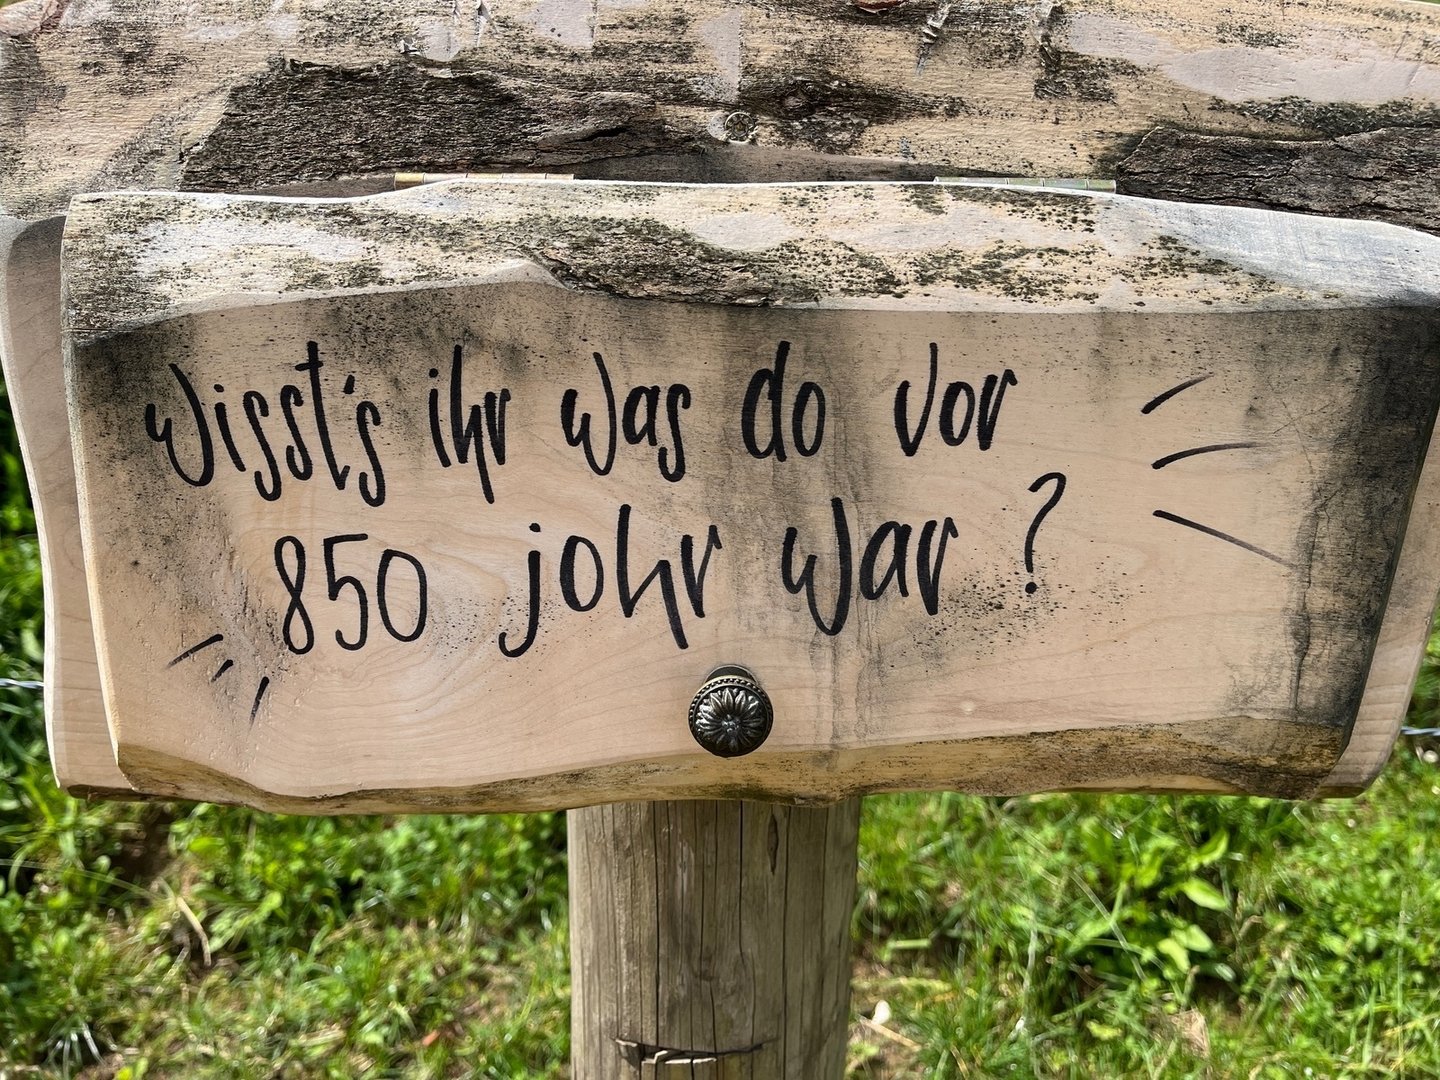 Wisst's ihr was do vor
850 johr war ?